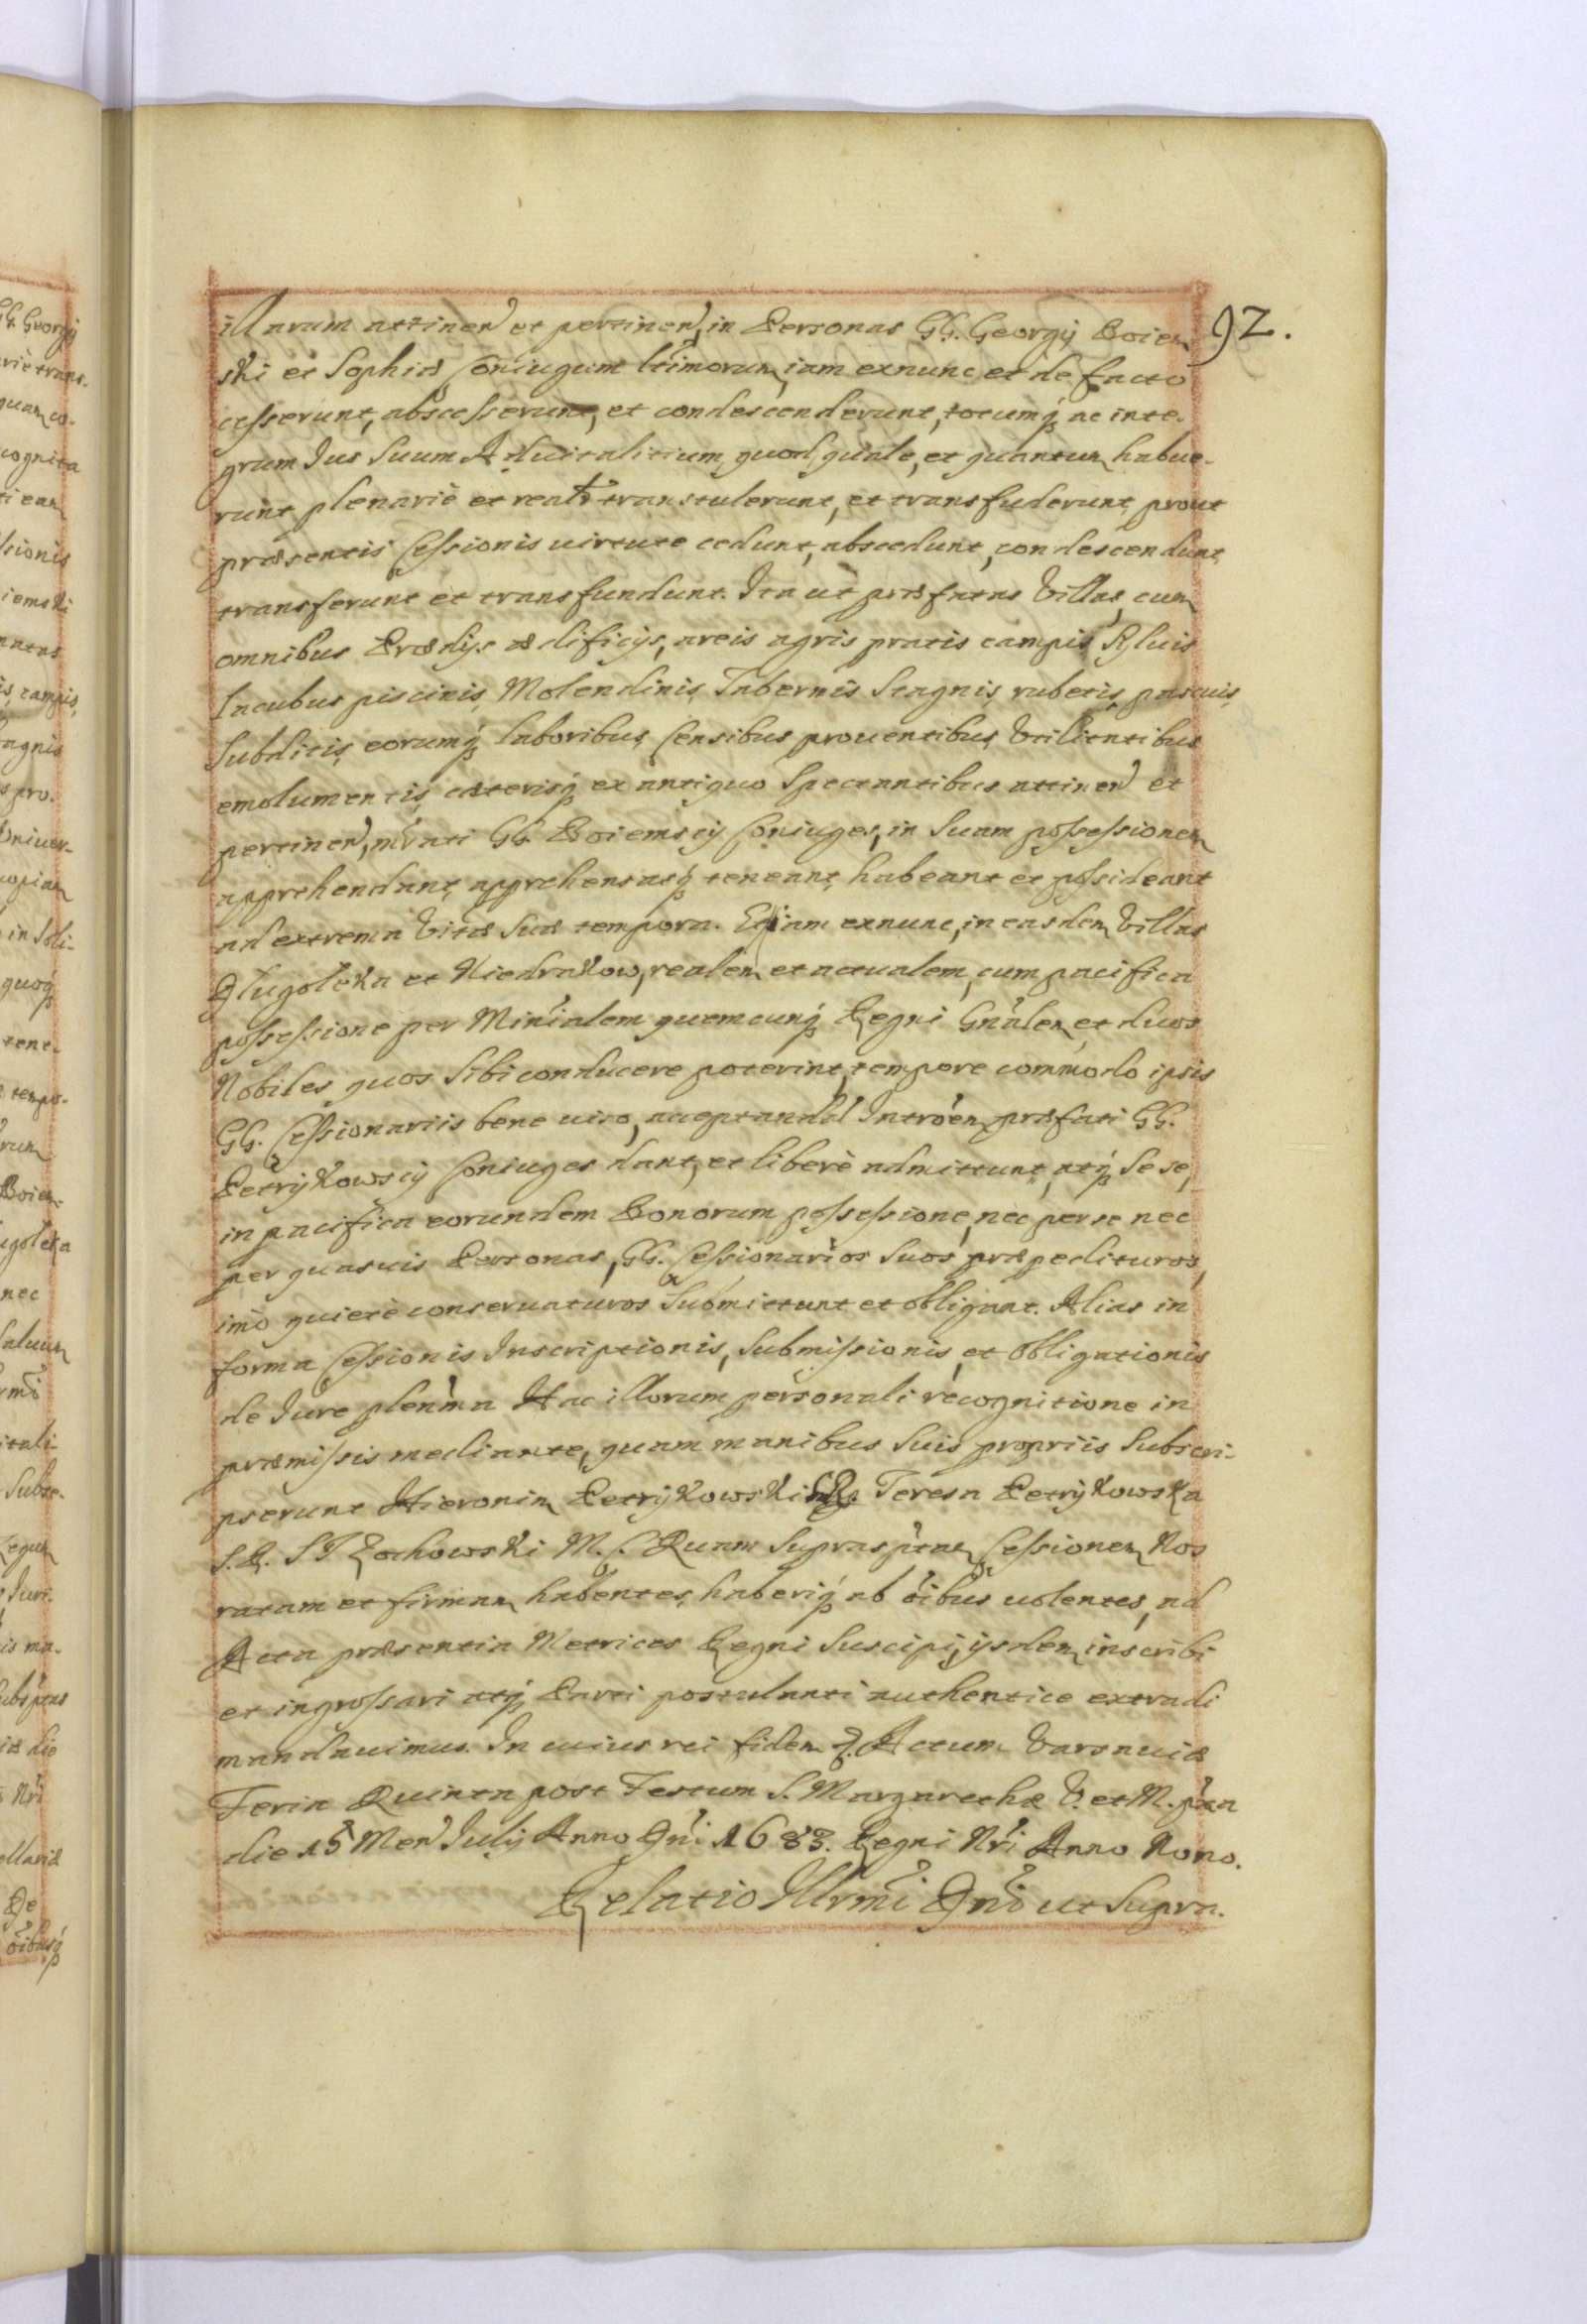 92.
illarum attinen et pertinen, in Personas GG. Georgij Boiem
ski et Sophiæ Coniugum ltimorum, iam exnunc et de facto
cesserunt, abscesserunt, et condescenderunt, totumq́ ac inte-
grum Jus Suum Aduitalitium, quod, quale, et quantum habue-
runt plenariè et realr transtulerunt, et transfuderunt, prout
præsentis Cessionis uirtute cedunt, abscedunt, condescendunt,
transferunt et transfundunt. Ita ut præfatas Villas, cum
omnibus Prædijs ædificijs, areis agris pratis campis Syluis
Lacubus piscinis, Molendinis, Tabernis Stagnis, rubetis, pascuis,
Subditis, eorumq́ laboribus, Censibus prouentibus, Vtilitatibus
emolumentis, cæterisq́ ex antiquo Spectantibus attinen et
pertinen, mrati GG. Boiemscij Coniuges, in Suam possessionem
apprehendant, apprehensasq́ teneant, habeant et possideant
ad extrema Vitæ Suæ tempora. Etiam exnunc, in easdem Villas
Dlugoleka et Kiedrakow, realem et actualem, cum pacifica
possessione per Minialem quemcunq́ Regni Gnalem, et duos
Nobiles, quos Sibi conducere poterint, tempore commodo ipsis
GG. Cessionariis bene uiso, acceptandd Introem, præfati GG.
Petrÿkowscij Coniuges dant, et liberè admittunt, atq́ Se se,
in pacifica eorundem Bonorum possessione, nec per se nec
per quasuis Personas, GG. Cessionarios Suos præpedituros,
imò quietè conseruaturos Submittunt et obligant. Alias in
forma Cessionis Inscriptionis, Submissionis, et Obligationis
de Jure plenma Hac illorum personali recognitione in
præmissis mediante, quam manibus Suis propriis Subscri-
pserunt Hieronim Petrÿkowski Teresa Petrÿkowska
S. R. ST Zochowski M. C. Quam Suprasptam Cessionem Nos
ratam et firmam habentes, haberiq́ ab oibus uolentes, ad
Acta præsentia Metrices Regni Suscipi, ijsdem inscribi
et ingrossari atq́ Parti postulanti authentice extradi
mandauimus. In cuius rei fidem &. Actum Varsauiæ
Feria Quinta post Festum S. Margarethæ V. et M. pxa
die 15 Men Julij Anno Dni 1683. Regni Nri Anno Nono.
Relatio Illrmi Dni ut Supra.